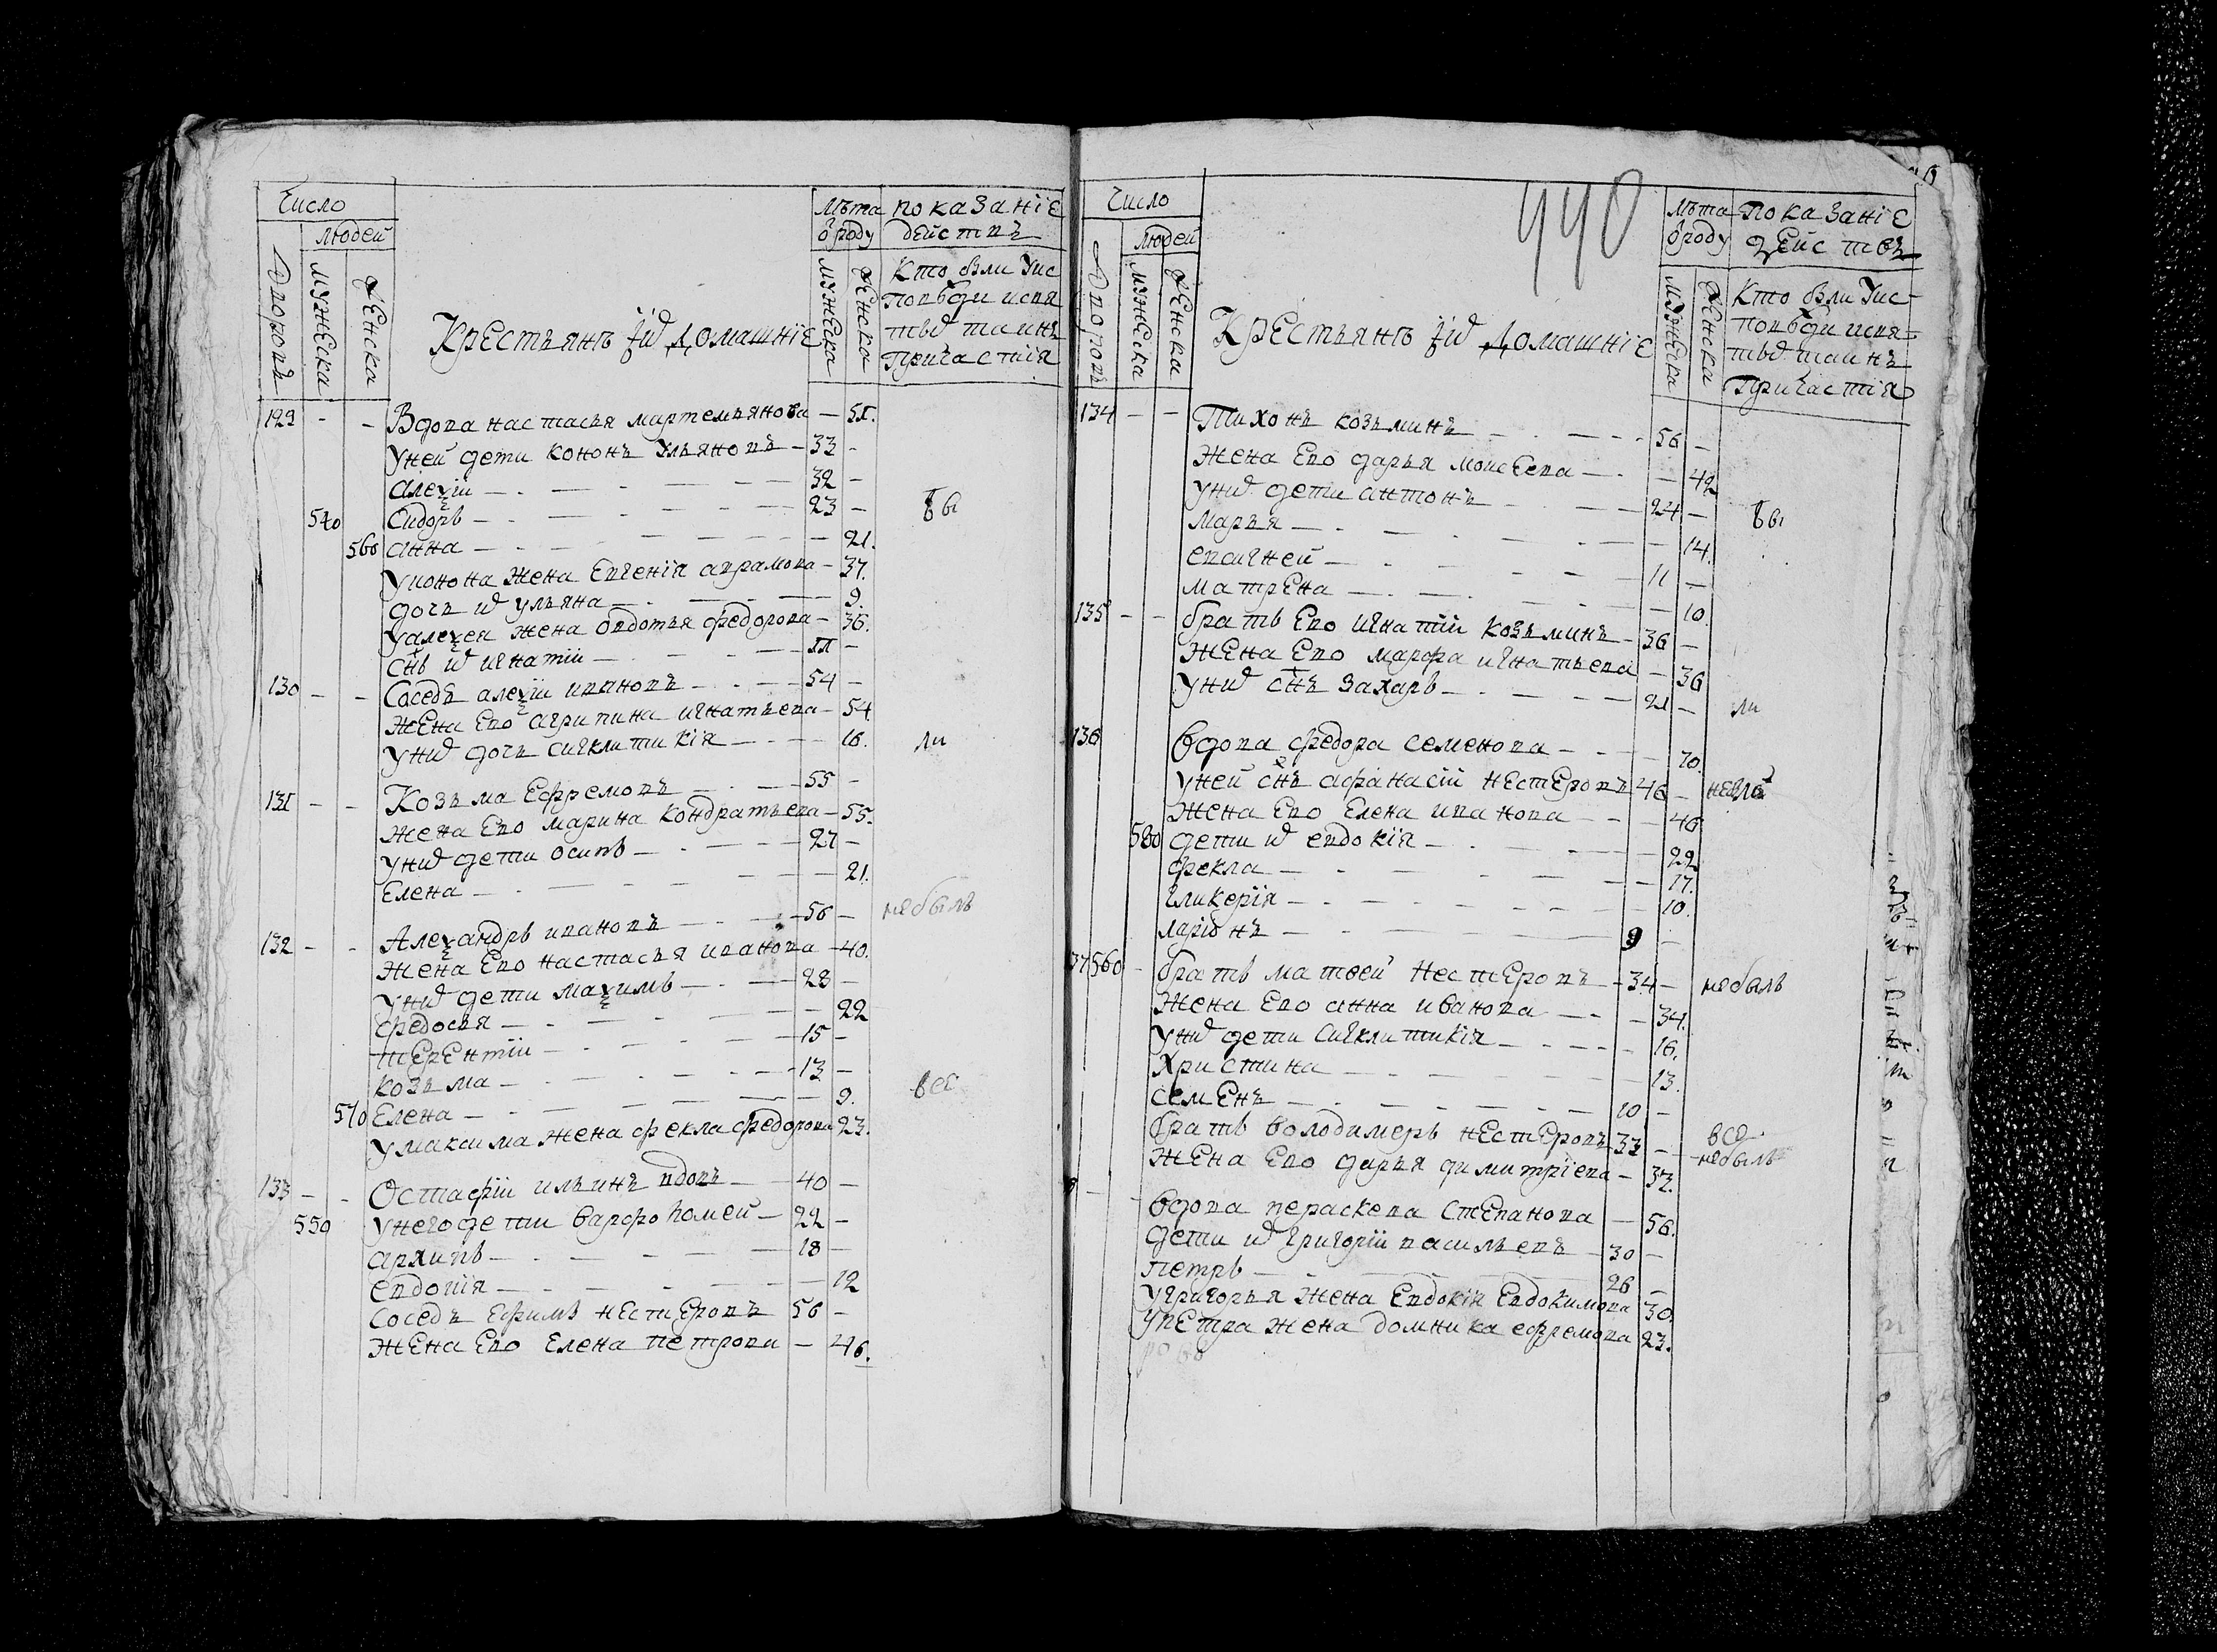 Число
людей
Дворовъ
мужеска
женска
Крестьянъ и их домашніе
Лѣта
ѿ роду
мужеска
женска
показаніе
действъ
Кто были у ис
поведи и свя
тых таинъ
Причастія
129 - - Вдова настасья мартемьянова — 51.
у ней дети кононъ ульяновъ — 33 -
алеѯіи — 32 -
540 Сидоръ — 23 — бы
560 анна — 21.
у конона жена Евгенія аврамова — 37.
дочь их ульяна — 9.
у алеѯея жена овдотья федорова — 35.
снъ их игнатіи — 11 -
130 - - Соседъ алеѯіи ивановъ — 54 -
Жена Ево агрипина игнатьева — 54.
у них дочь сигклитикія — 16. ли
131 - - Козьма Ефремовъ — 55 -
жена Ево марина кондратьева — 55.
у них дети осипъ — 27 -
Елена — 21.
132 - - Алеѯандръ ивановъ — 56 — небылъ
Жена Ево настасья иванова — 40.
у них дети маѯимъ — 28 -
федосья — 22
терентіи — 15 -
козьма — 13 -
570 Елена — 9. все
у максима жена фекла федорова 23.
133 - - Остафіи ильинъ вдовъ — 40 -
550 у него дети варфоломей — 22 -
архипъ — 18 -
евдокія — 12
соседъ Ефимъ нестеровъ 56 -
жена Ево Елена петрова — 46.
440
Число
людей
Дворовъ
мужеска
женска
Крестьянъ и их домашніе
Лѣта
ѿ роду
мужеска
женска
показаніе
действъ
Кто были у ис-
поведи и свя-
тых таинъ
Причастія
134 - - Тихонъ козьминъ — 56 -
жена Ево дарья моисеева — 42
у них дети антонъ — 24 — бы
марья — 14.
евсигней — 11 -
матрена — 10.
135 - - братъ Ево игнатіи козьминъ — 36 -
жена Ево марфа игнатьева — 36
у них снъ захаръ — 21 — ли
136 вдова федора семенова — 70.
у ней снъ афанасіи нестеровъ 46 -
жена Ево Елена иванова — 46
580 дети их евдокія — 22
фекла — 17.
гликерія — 10.
ларіонъ — 9 -
37 560 - братъ матвей нестеровъ — 34 — небылъ
жена Ево анна иванова — 34.
у них дети сигклитикія — 16.
христина — 13.
семенъ — 10 -
братъ володимеръ нестеровъ 33 — все небылъ
жена Ево дарья димитріева — 37.
- - вдова пераскева степанова — 56.
дети их григоріи васильевъ — 30 -
петръ — 26 -
у григорья жена Евдокія Евдокимова 30.
у петра жена домника ефремова 23.